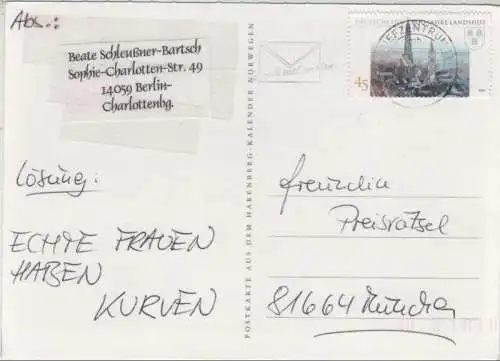 Abs.:
Beate Schleußner-Bartsch
Sophie-Charlotten-Str. 49
14059 Berlin-
Charlottenbg.
Lösung:
ECHTE FRAUEN
HABEN
KURVEN
POSTKARTE AUS DEM HARENBERG-KALENDER NORWEGEN
JAHRE LANDSHUT
45
Freundin
Preisrätsel
81664 München